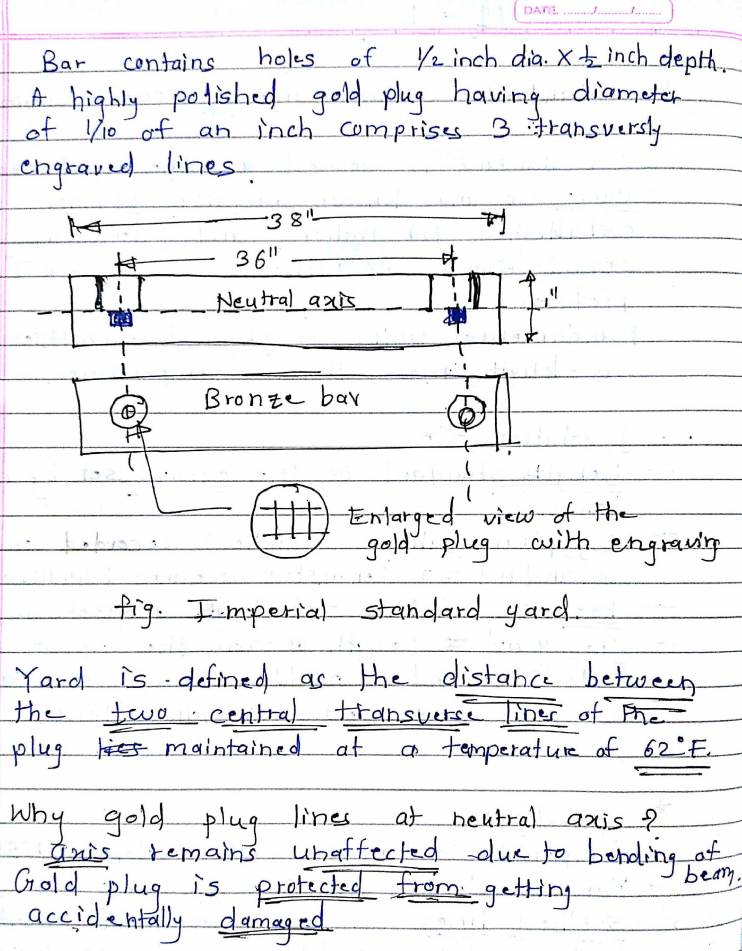 DATE ......../........../.........
Bar contains holes of 1/2 inch dia. X 1/2 inch depth.
A highly polished gold plug having diameter
of 1/10 of an inch comprises 3 transversly
engraved lines.
38"
36"
Neutral axis
1"
Bronze bar
Enlarged view of the
gold plug with engraving
fig. Imperial standard yard.
Yard is defined as the distance between
the two central transverse lines of the
plug maintained at a temperature of 62°F.
Why gold plug lines at neutral axis?
axis remains unaffected due to bending of
beam.
Gold plug is protected from getting
accidentally damaged